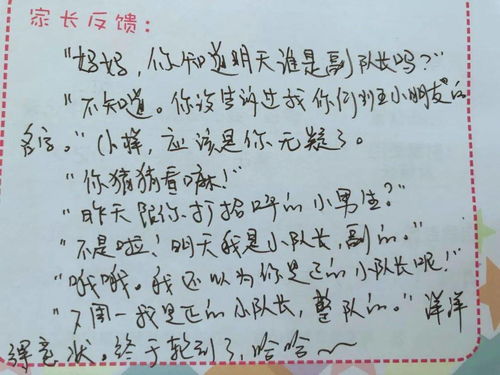 家长反馈:
"妈妈,你知道明天谁是副队长吗?"
"不知道。你没告诉过我你们班小朋友的
名字。"(小样,应该是你无疑了。
"你猜猜看嘛!"
"昨天跟你打招呼的小男生?"
"不是啦!明天我是小队长,副的。"
"哦哦。我还以为你是正的小队长呢!"
"下周一我是正的小队长,整队的。"洋洋
得意状。终于轮到了,哈哈~